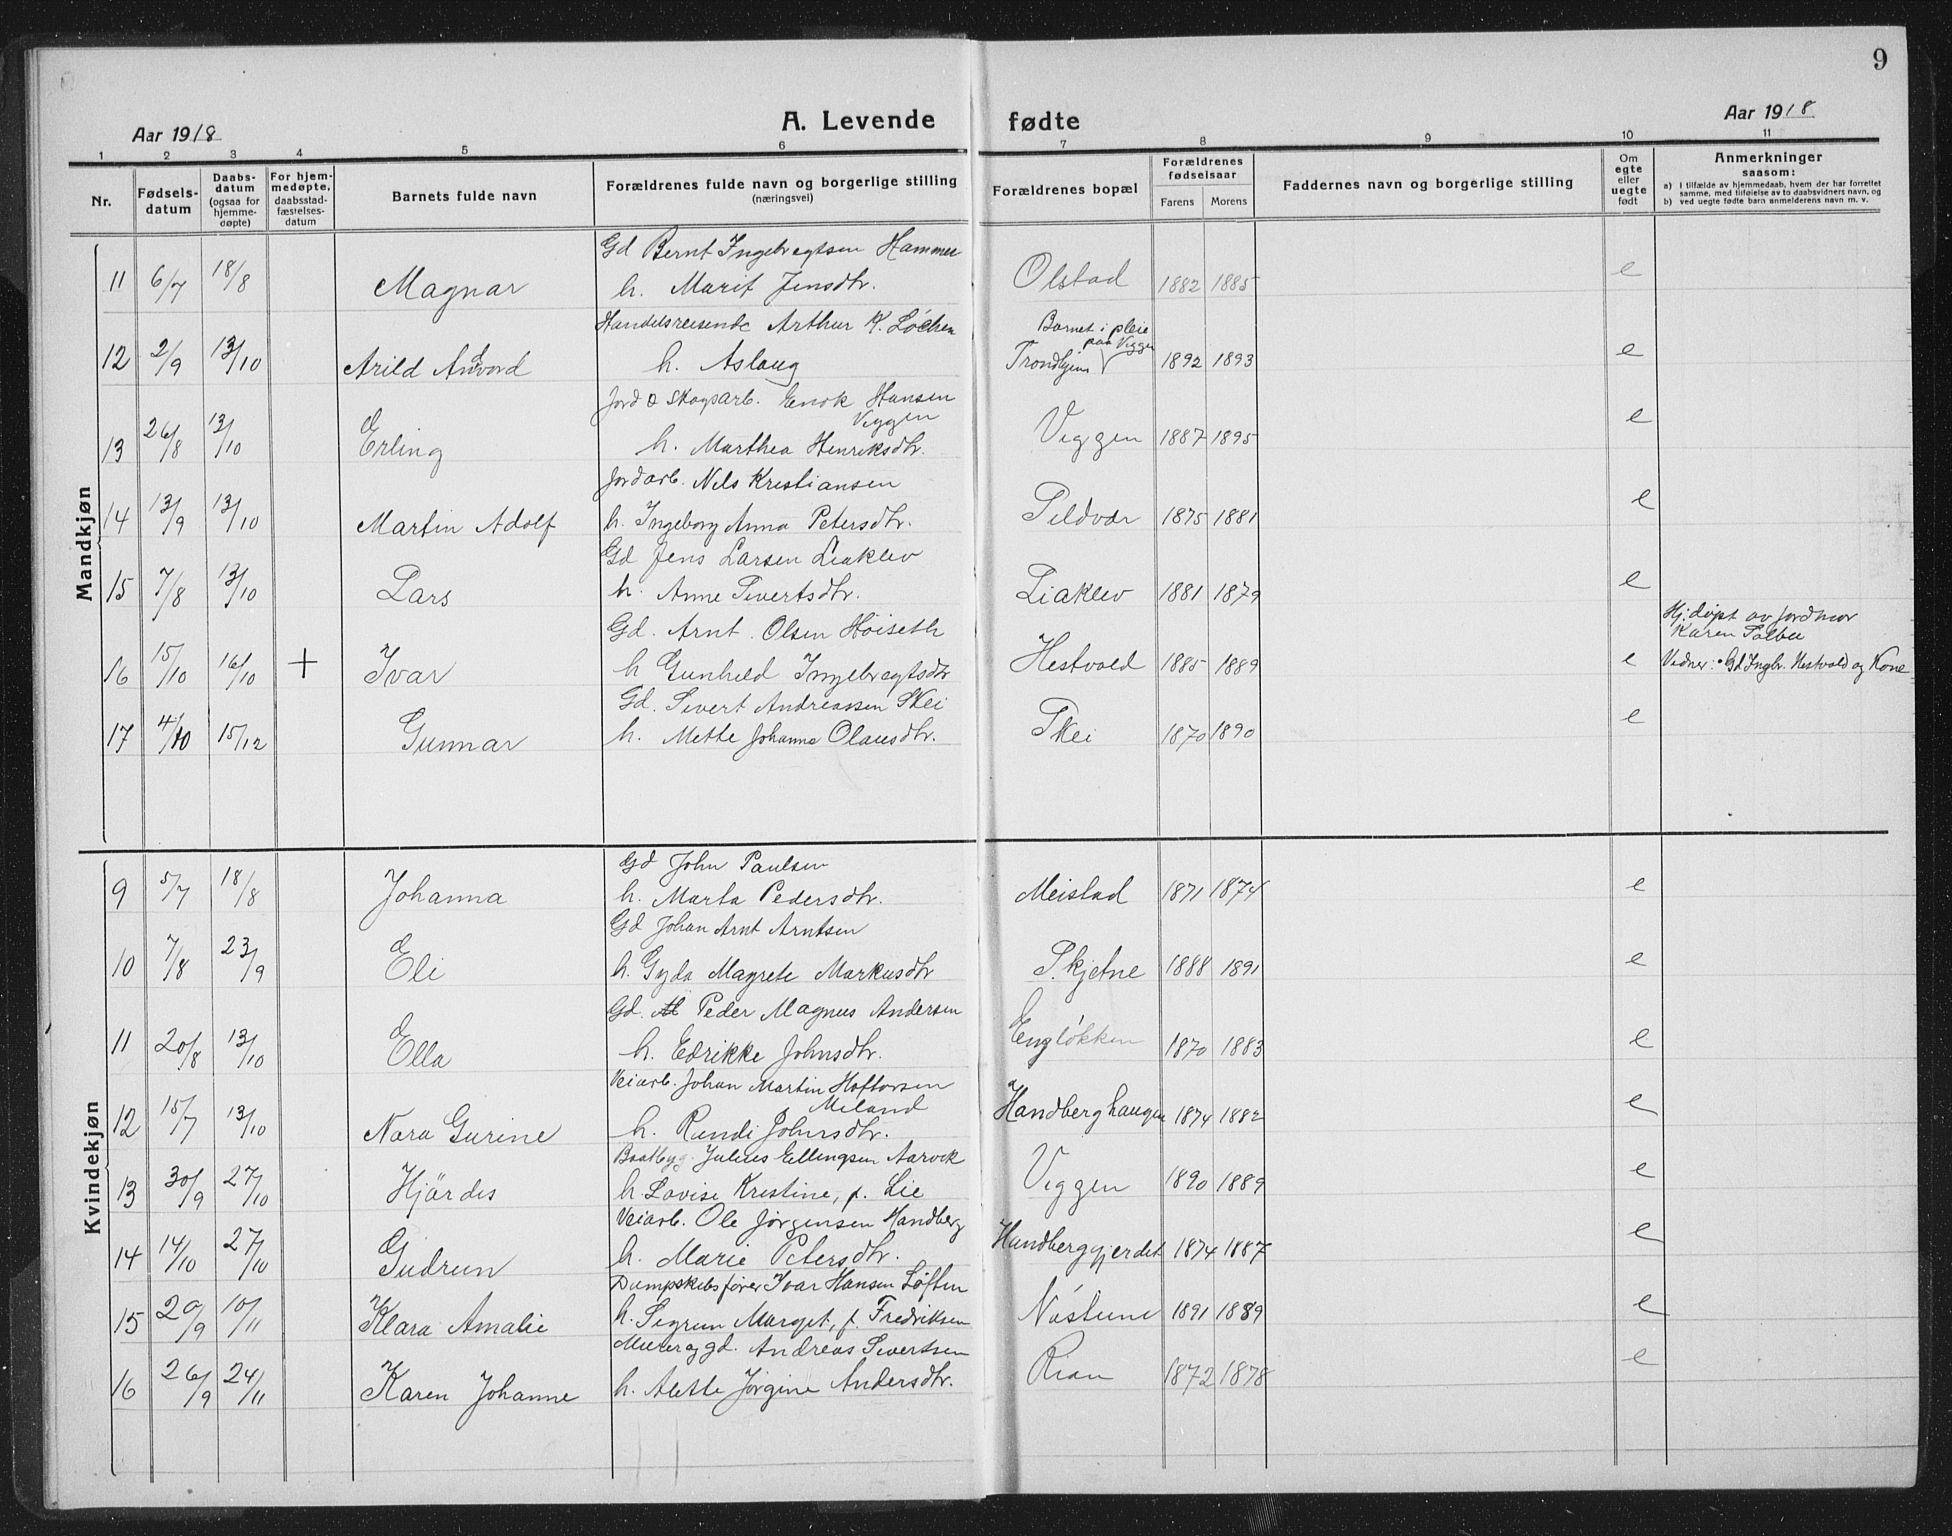 9
Aar 1918
A. Levende fødte
Aar 1918
1 2 3 4 5 6 7 8 9 10 11
Nr.
Fødsels-
datum
Daabs-
datum
(ogsaa for
hjemme-
døpte)
For hjem-
medøpte,
daabsstad-
fæstelses-
datum
Barnets fulde navn
Forældrenes fulde navn og borgerlige stilling
(næringsvei)
Forældrenes bopæl
Forældrenes
fødselsaar
Farens Morens
Faddernes navn og borgerlige stilling
Om
egte
eller
uegte
født
Anmerkninger
saasom:
a) I tilfælde av hjemmedaab, hvem der har forrettet
samme, med tilføielse av to daabsvidners navn, og
b) ved uegte fødte barn anmelderens navn m. v.
Mandkjøn
Gd Bernt Ingebregtsen Hammer
11 6/7 18/8 Magnar h. Marit Jensdtr. Olstad 1882 1885 e
Handelsreisende Arthur K. Løchen
Barnet i pleie
paa Viggen
12 2/9 13/10 Arild Andvord h. Aslaug Trondhjem 1892 1893 e
Jord o Skogsarb. Enok Hansen
Viggen
13 26/8 13/10 Erling h. Marthea Henriksdtr. Viggen 1887 1895 e
Jordarb. Nils Kristiansen
14 13/9 13/10 Martin Adolf h. Ingeborg Anna Petersdtr. 1875 1881 e
Gd Jens Larsen Liaklev
15 7/8 13/10 Lars h. Anne Sivertsdtr. Liaklev 1881 1879 e
Gd. Arnt Olsen Høiseth
Hj. døpt av Jordmor
Karen Solbu
16 15/10 16/10 + Ivar h Gunhild Ingebregtsdtr Hestvold 1885 1889 e Vidner: Gd Ingbr. Hestvold og Kone
Gd. Sivert Andreassen Skei
17 4/10 15/12 Gunnar h. Mette Johanna Olausdtr. Skei 1870 1890 e
Kvindekjøn
Gd John Paulsen
9 5/7 18/8 Johanna h. Marta Pedersdtr. Meistad 1871 1874 e
Gd Johan Arnt Arntsen
10 7/8 23/9 Eli h. Gyda Magrete Markusdtr Skjetne 1888 1891 e
Gd. Peder Magnus Andersen
11 20/8 13/10 Ella h. Edrikke Johnsdtr. Engløkken 1870 1883 e
Veiarb. Johan Martin Hoftorsen
Meland
12 15/7 13/10 Nora Gurine h. Randi Johnsdtr. Handberghaugen 1874 1882 e
Baatbyg. Julius Ellingsen Aarvik
13 30/9 27/10 Hjørdis h. Lovise Kristine, f. Lie Viggen 1890 1889 e
Veiarb. Ole Jørgensen Handberg
14 14/10 27/10 Gudrun h. Marie Petersdtr. Handberggjerdet 1874 1887 e
Dampskibsfører Ivar Hansen Løften
15 20/9 10/11 Klara Amalie h. Sigrun Marget, f. Fredriksen Nøstune 1891 1889 e
Murer og gd. Andreas Sivertsen
16 26/9 24/11 Karen Johanne h. Alette Jørgine Andersdtr. Rian 1872 1878 e